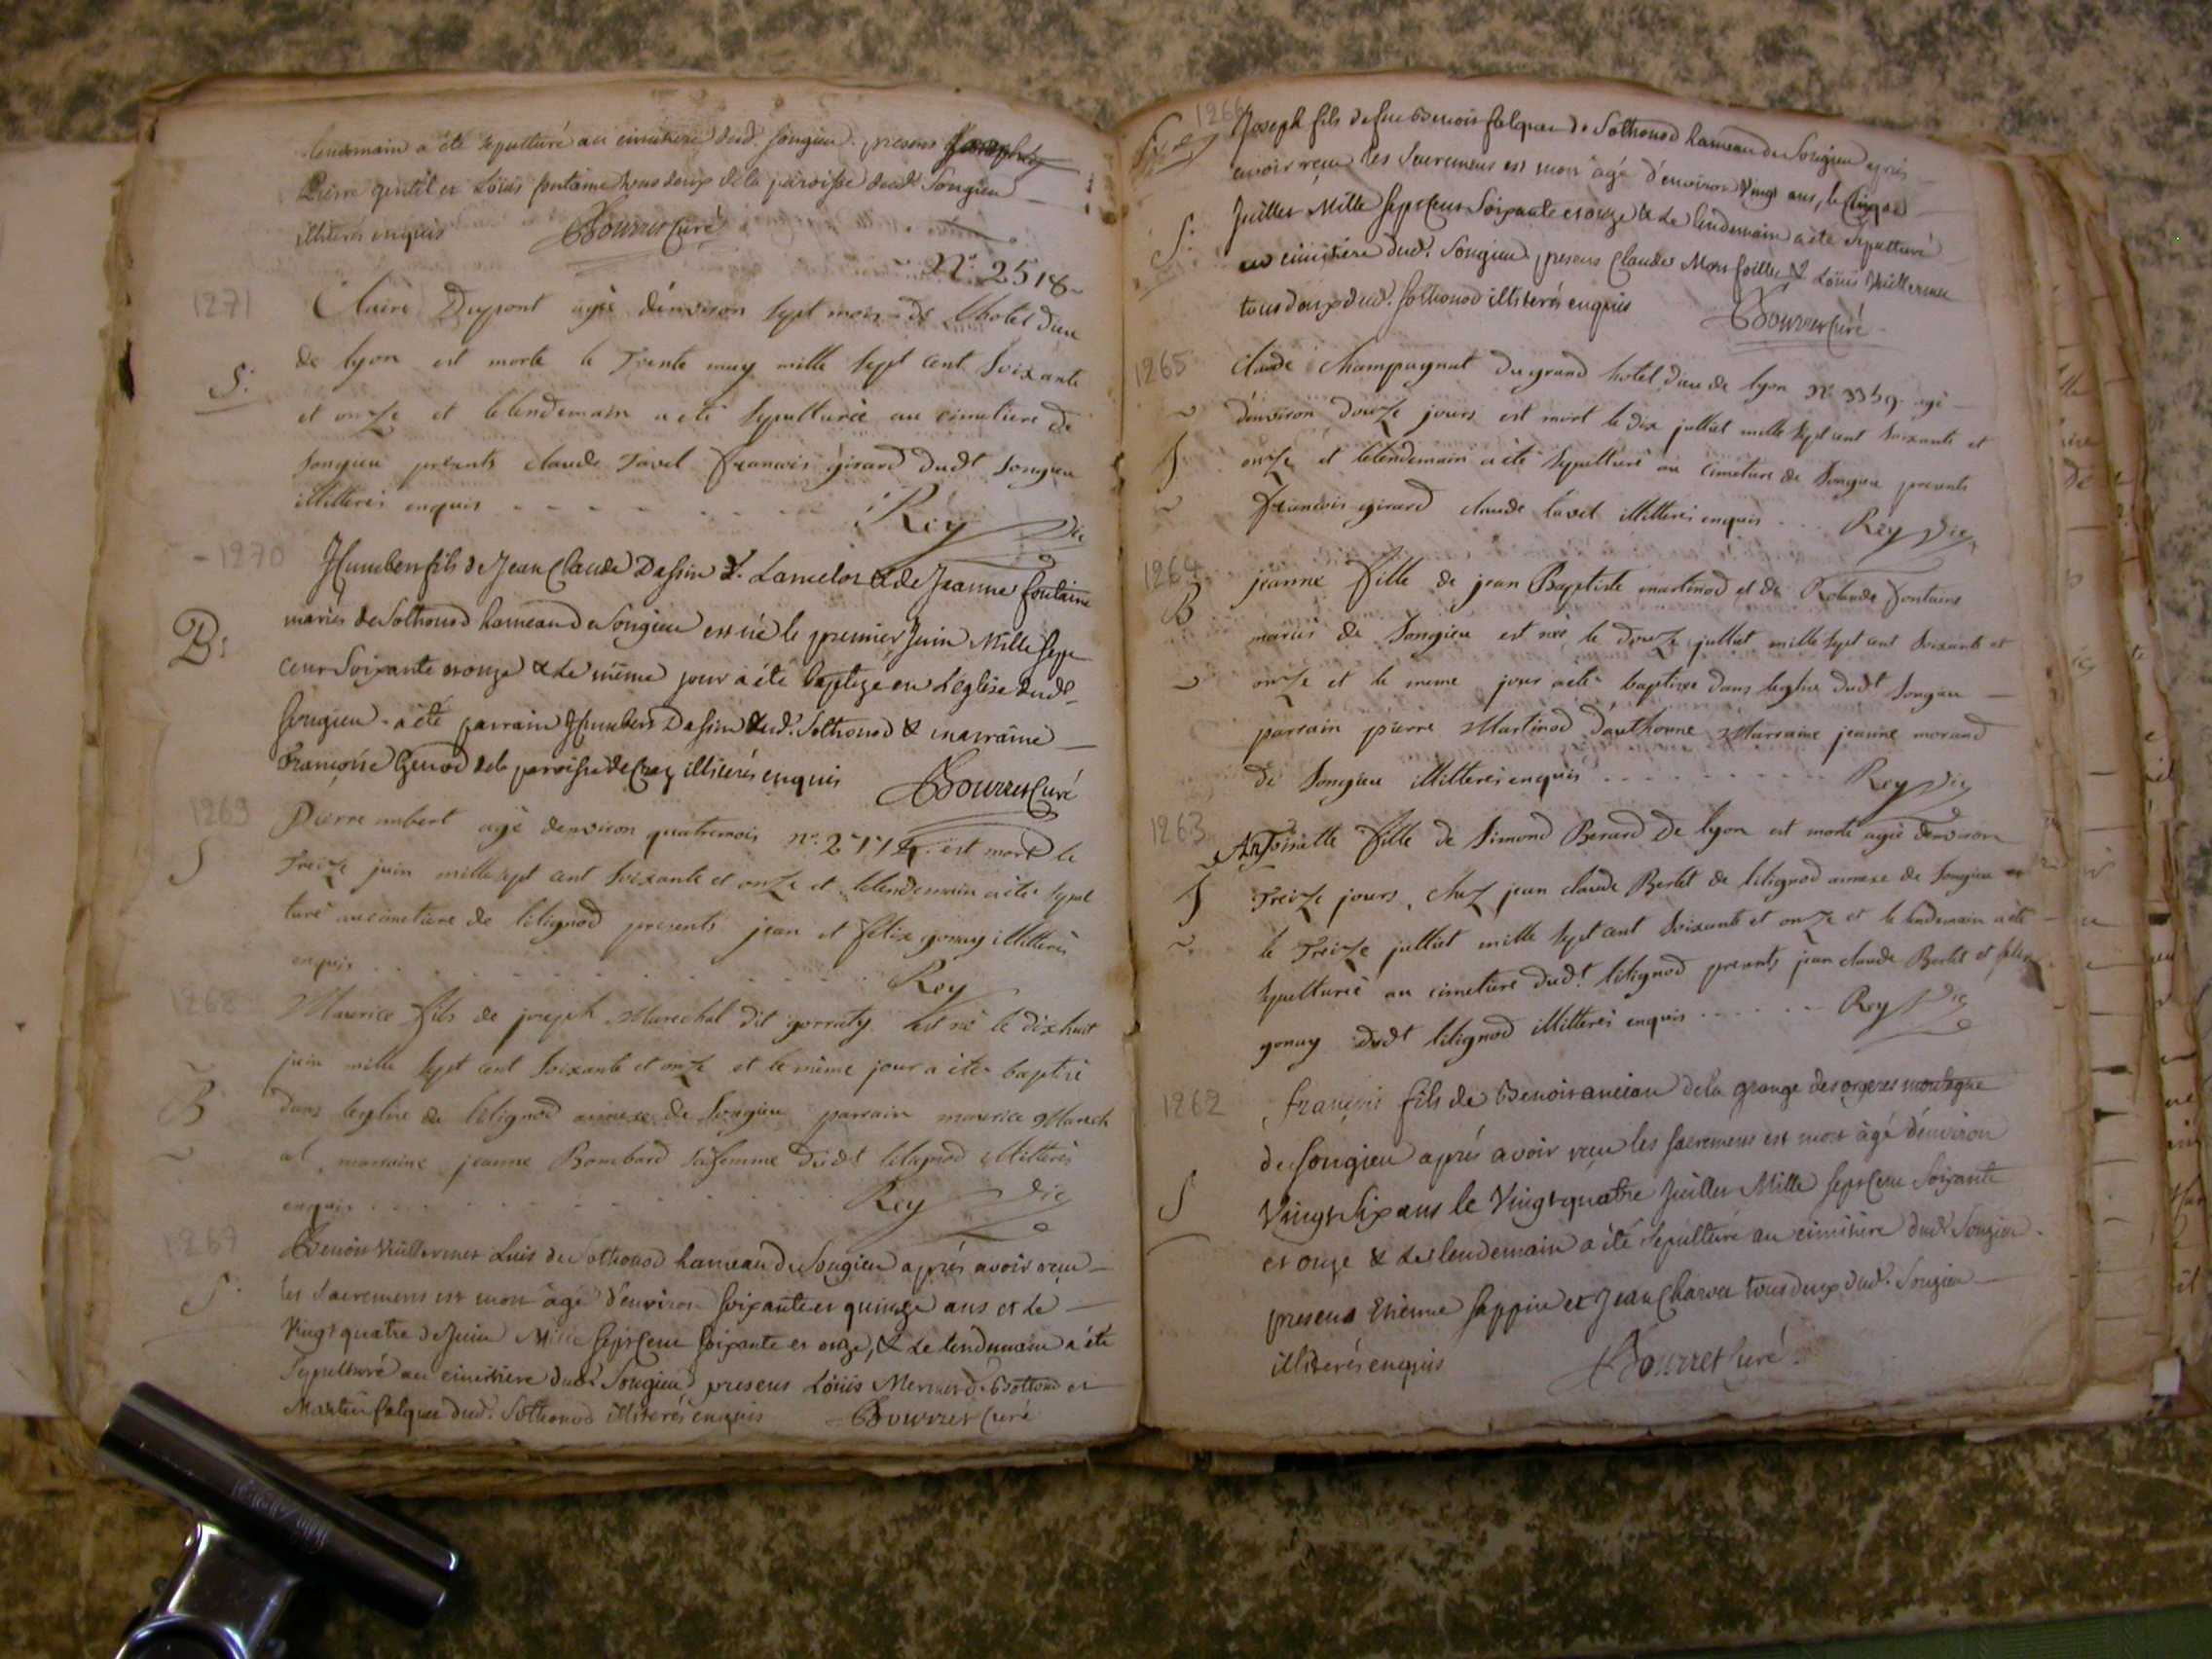 lendemain a été sepulturé au cimitiere dud. Songieu. presens
Pierre gentil et Loüis fontaine tous deux de la paroisse dud. Songieu
illiterés enquis Bourret Curé
N.° 2518
1271
Claire Dupont agée d'environ sept mois de l'hotel dieu
de lyon est morte le Trente may mille sept cent soixante
S.
et onze et lelendemain a eté sepulturée au cimetiere de
songieu presents claude Tavel francois girard dudt songieu
illitterés enquis Rey Vic
1270
Humbert fils de Jean Claude Dassin d. Lancelot & de Jeanne fontaine
mariés de Sothonod hameau de Songieu est né le premier Juin Mille sept
B:
cent Soixante et onze & le même jour a été baptizé en L'église dudt
Songieu. a été parrain Humbert Dassin dud. Sothonod & marraine
françoise Genod de la paroisse de illiterés enquis Bourret Curé
1269
Pierre imbert agé denviron quatre mois n.° est mort le
S
Treize juin mille sept cent soixante et onze et lelendemain a eté sepul
turé au cimetiere de lilignod presents jean et felix gonuy illitterés
enquis Rey
1268
Maurice fils de joseph Marechal dit gorraty est né le dix huit
juin mille sept cent soixante et onze et le même jour a eté baptisé
B
dans leglise de lilignod annexe de Songieu parrain maurice Marech
al marraine jeanne Bombard sa femme dudt lilignod illitterés
enquis Rey Vic
1267
Benoit Vuillermet Luis de Sothonod hameau de Songieu aprés avoir reçu
S.
les Sacremens est mort âgé d'environ soixante et quinze ans et le
Vingt quatre de Juin Mille sept Cent soixante et onze, & le lendemain a été
Sepulturé au cimitiere dud. Songieu presens Loüis Mermet d. Bottond et
Martin falque dud. Sothonod illiterés enquis Bourret Curé
1266
Joseph fils de feu Benoit falque de Sothonod hameau de Songieu aprés
avoir reçu les Sacremens est mort âgé d'environ Vingt ans, le Cinq de
Juillet Mille sept Cent Soixante et onze & Le lendemain a été Sepulturé
S.
au cimitiere dud. Songieu, presens Claude & Loüis Vuillermet
tous deux dud. Sothonod illiterés enquis Bourret Curé
1265
Claude Champagnat du grand hotel dieu de lyon N.° 3359 agé
d'environ douze jours est mort le dix juillet mille sept cent soixante et
S
onze et lelendemain a été sepulturé au cimetiere de Songieu presents
francois girard claude tavel illitterés enquis Rey Vic
1264
jeanne fille de jean Baptiste martinod et de Rolande fontaine
B
mariés de Songieu est née le douze juillet mille sept cent soixante et
onze et le meme jour a eté baptisée dans leglise dudt Songieu
parrain pierre Martinod d'authonne Marraine jeanne morand
de Songieu illitterés enquis Rey Vic
1263
Antoinette fille de Simond Berard de lyon est morte agée denviron
S
Treize jours, chez jean claude Bertet de lilignod annexe de Songieu
le Treize juillet mille sept cent soixante et onze et le lendemain a eté
sepulturée au cimetiere dudt. lilignod presents jean claude Bertet et felix
gonuy dudt lilignod illitterés enquis Rey Vic
1262
françois fils de Benoit ancian de la grange des orgeres montagne
de Songieu aprés avoir reçu les sacremens est mort âgé d'environ
S
Vingt Six ans le Vingt quatre Juillet Mille sept Cent Soixante
et onze & le lendemain a été sepulturé au cimitiere dudt Songieu.
presens Etienne sappin et Jean Charvet tous deux dud. Songieu
illiterés enquis Bourret Curé.